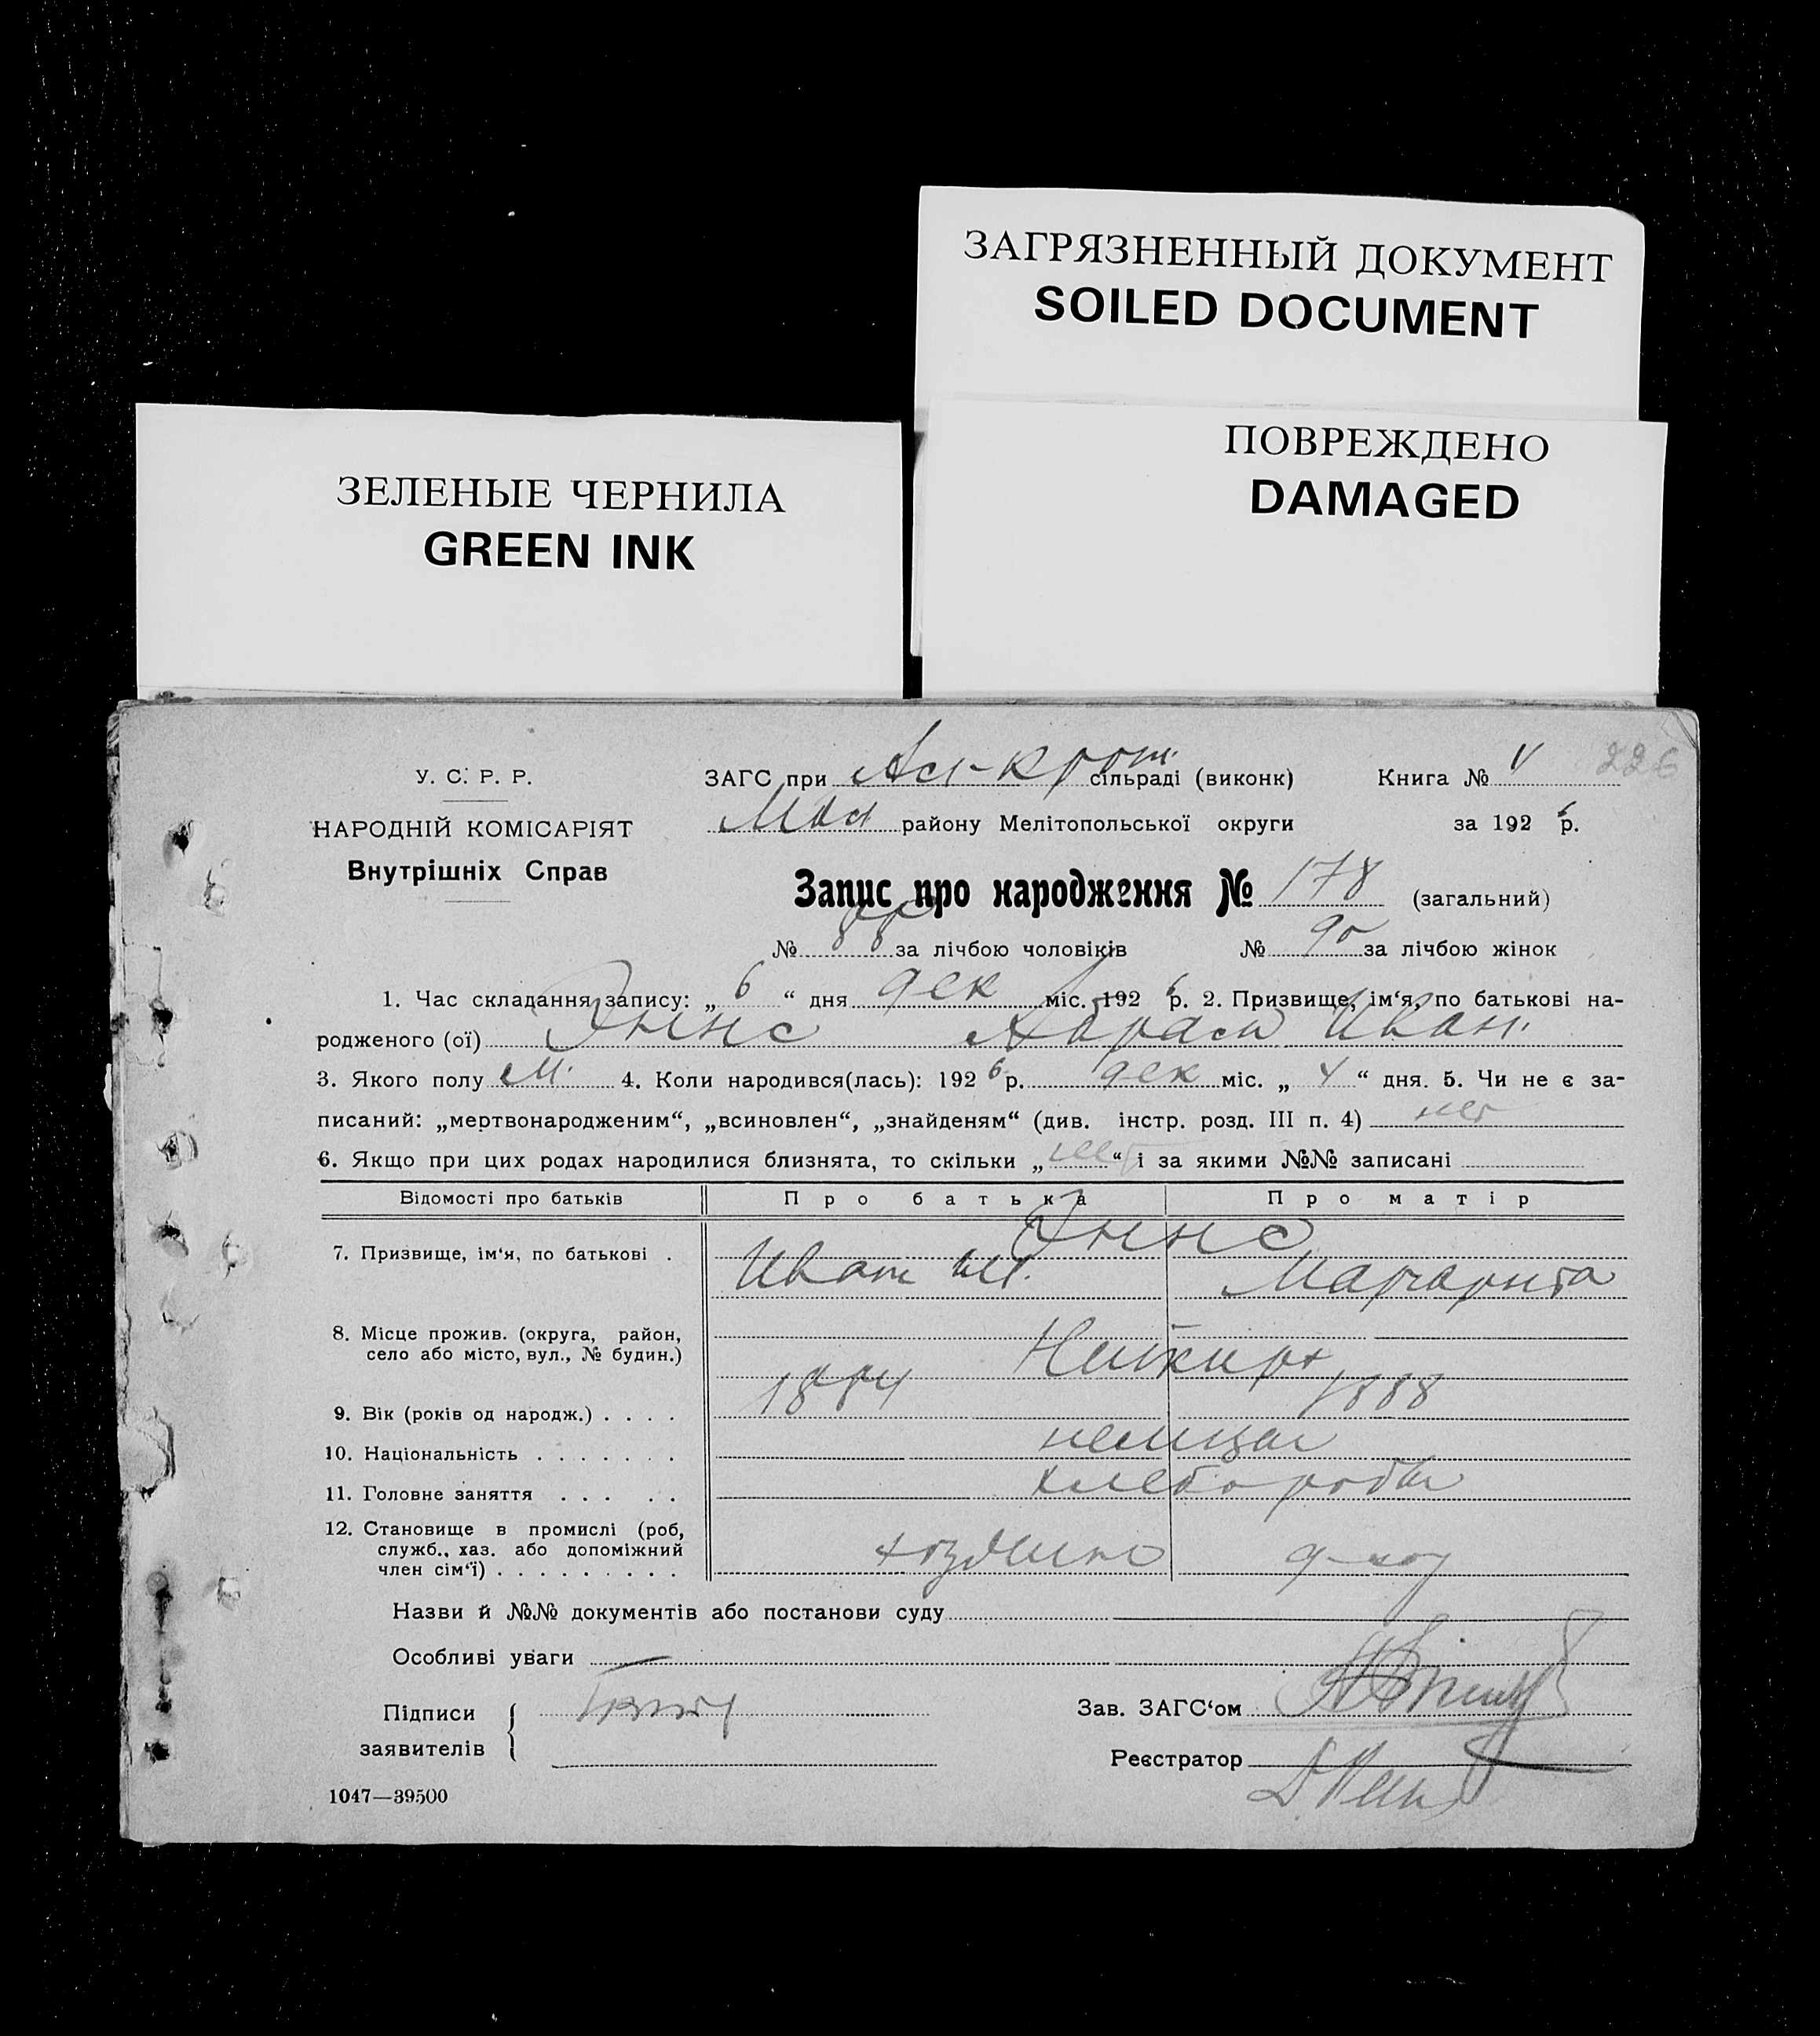 ЗАГРЯЗНЕННЫЙ ДОКУМЕНТ
SOILED DOCUMENT
ПОВРЕЖДЕНО
DAMAGED
ЗЕЛЕНЫЕ ЧЕРНИЛА
GREEN INK
У. С. Р. Р.
НАРОДНІЙ КОМІСАРІЯТ
Внутрішніх Справ
ЗАГС при сільраді (виконк) Книга № V 226
Мол району Мелітопольської округи за 1926 р.
Запис про народження № 178 (загальний)
№ 88 за лічбою чоловіків № 90 за лічбою жінок
1. Час складання запису: „ 6 “ дня дек міс. 1926 р. 2. Призвище, ім‘я, по батькові на-
родженого (ої) Эннс Абрам Иван.
3. Якого полу м. 4. Коли народився(лась): 1926 р. дек міс. „ 4 “ дня. 5. Чи не є за-
писаний: „мертвонародженим“, „всиновлен“, „знайденям“ (див. інстр. розд. III п. 4) нет
6. Якщо при цих родах народилися близнята, то скільки „ нет “ і за якими №№ записані
Відомості про батьків Про батька Про матір
7. Призвище, ім‘я, по батькові . Эннс
Иван Маргарита
8. Місце прожив. (округа, район,
село або місто, вул., № будин.) Нейкирх
9. Вік (років од народж.) . . . . 1884 1888
10. Національність . . . . . . . немцы
11. Головне заняття . . . . . хлеборобы
12. Становище в промислі (роб,
служб., хаз. або допоміжний
член сім‘ї) . . . . . . . . . хозяин д-хоз
Назви й №№ документів або постанови суду
Особливі уваги
Підписи
заявителів
Зав. ЗАГС‘ом
Реєстратор
1047—39500